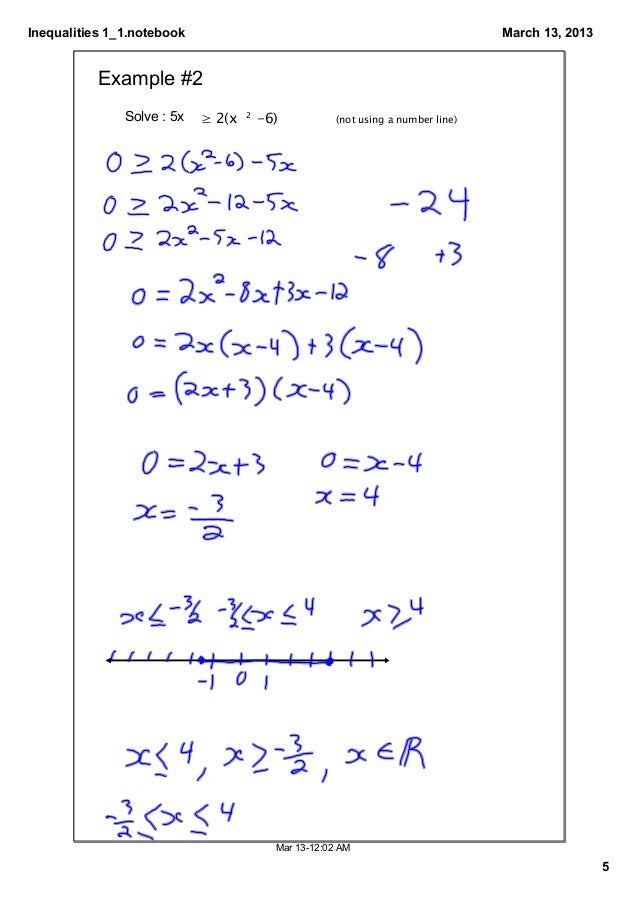 Inequalities 1_1.notebook March 13, 2013
Example #2
Solve : 5x ≥ 2(x ² -6) (not using a number line)
0 ≥ 2(x²-6) -5x
0 ≥ 2x²-12-5x -24
0 ≥ 2x²-5x-12 -8 +3
0 = 2x²-8x+3x-12
0 = 2x(x-4)+3(x-4)
0 = (2x+3)(x-4)
0 = 2x+3 0 = x-4
x = -3/2 x = 4
x ≤ -3/2 -3/2 ≤ x ≤ 4 x ≥ 4
-1 0 1
x ≤ 4, x ≥ -3/2, x ∈ ℝ
-3/2 ≤ x ≤ 4
Mar 13-12:02 AM
5